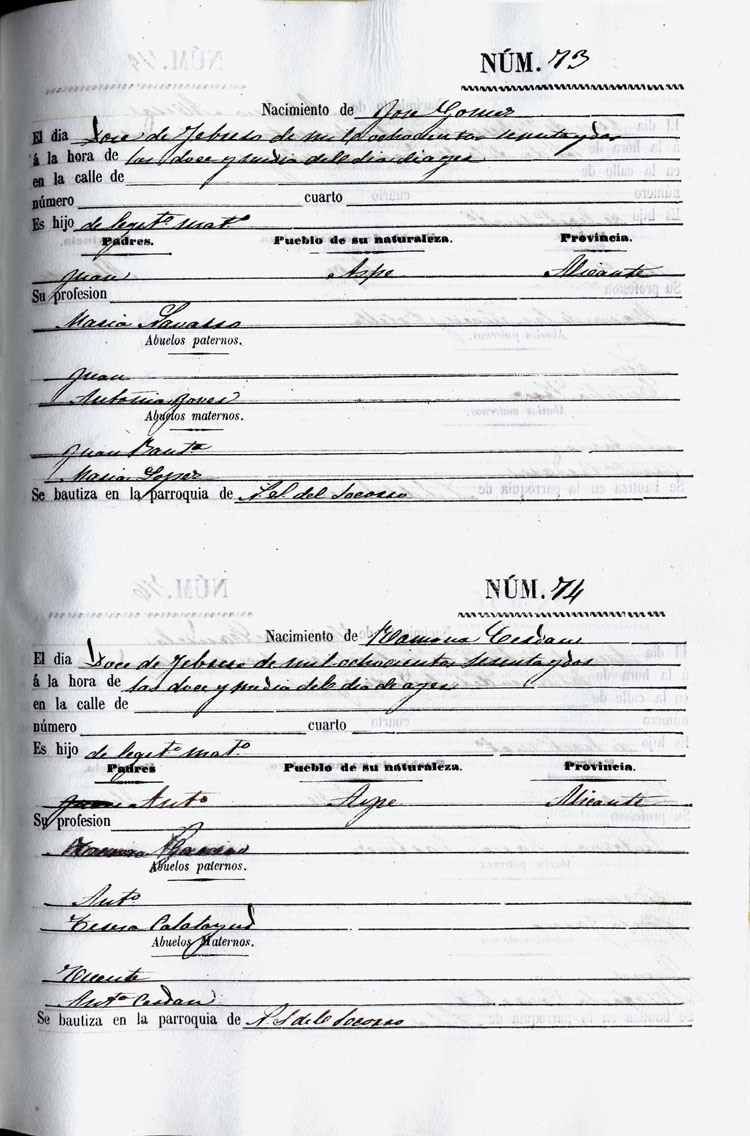 NÚM. 73
Nacimiento de Jose Gomez
El dia Doce de Febrero de mil ochocientos sesenta y dos
á la hora de las doce y media del dia de ayer
en la calle de
número cuarto
Es hijo de legitº matº
Padres. Pueblo de su naturaleza. Provincia.
Juan Aspe Alicante
Su profesion
Maria Navarro
Abuelos paternos.
Juan
Antonia
Abuelos maternos.
Juan Bautª
Maria Lopez
Se bautiza en la parroquia de N. S. del Socorro
NÚM. 74
Nacimiento de Ramona Cerdan
El dia Doce de Febrero de mil ochocientos sesenta y dos
á la hora de las doce y media del dia de ayer
en la calle de
número cuarto
Es hijo de legitº matº
Padres Pueblo de su naturaleza. Provincia.
Antº Aspe Alicante
Su profesion
Abuelos paternos.
Antº
Teresa Calatayud
Abuelos Maternos.
Vicente
Antª Cerdan
Se bautiza en la parroquia de N. S. del Socorro